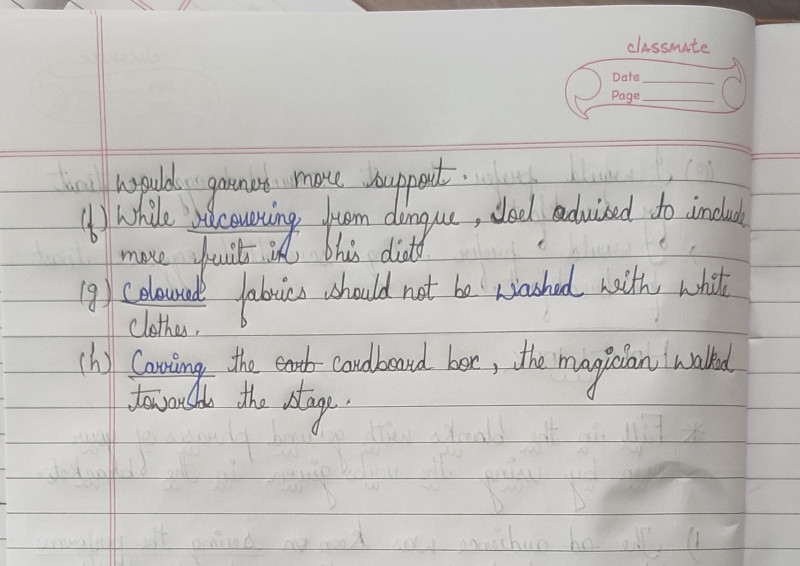 classmate
Date
Page
would garner more support.
(f) While recovering from dengue, Joel advised to include
more fruits in his diet
(g) Coloured fabrics should not be washed with white
clothes.
(h) Carring the carb cardboard box, the magician walked
towards the stage.